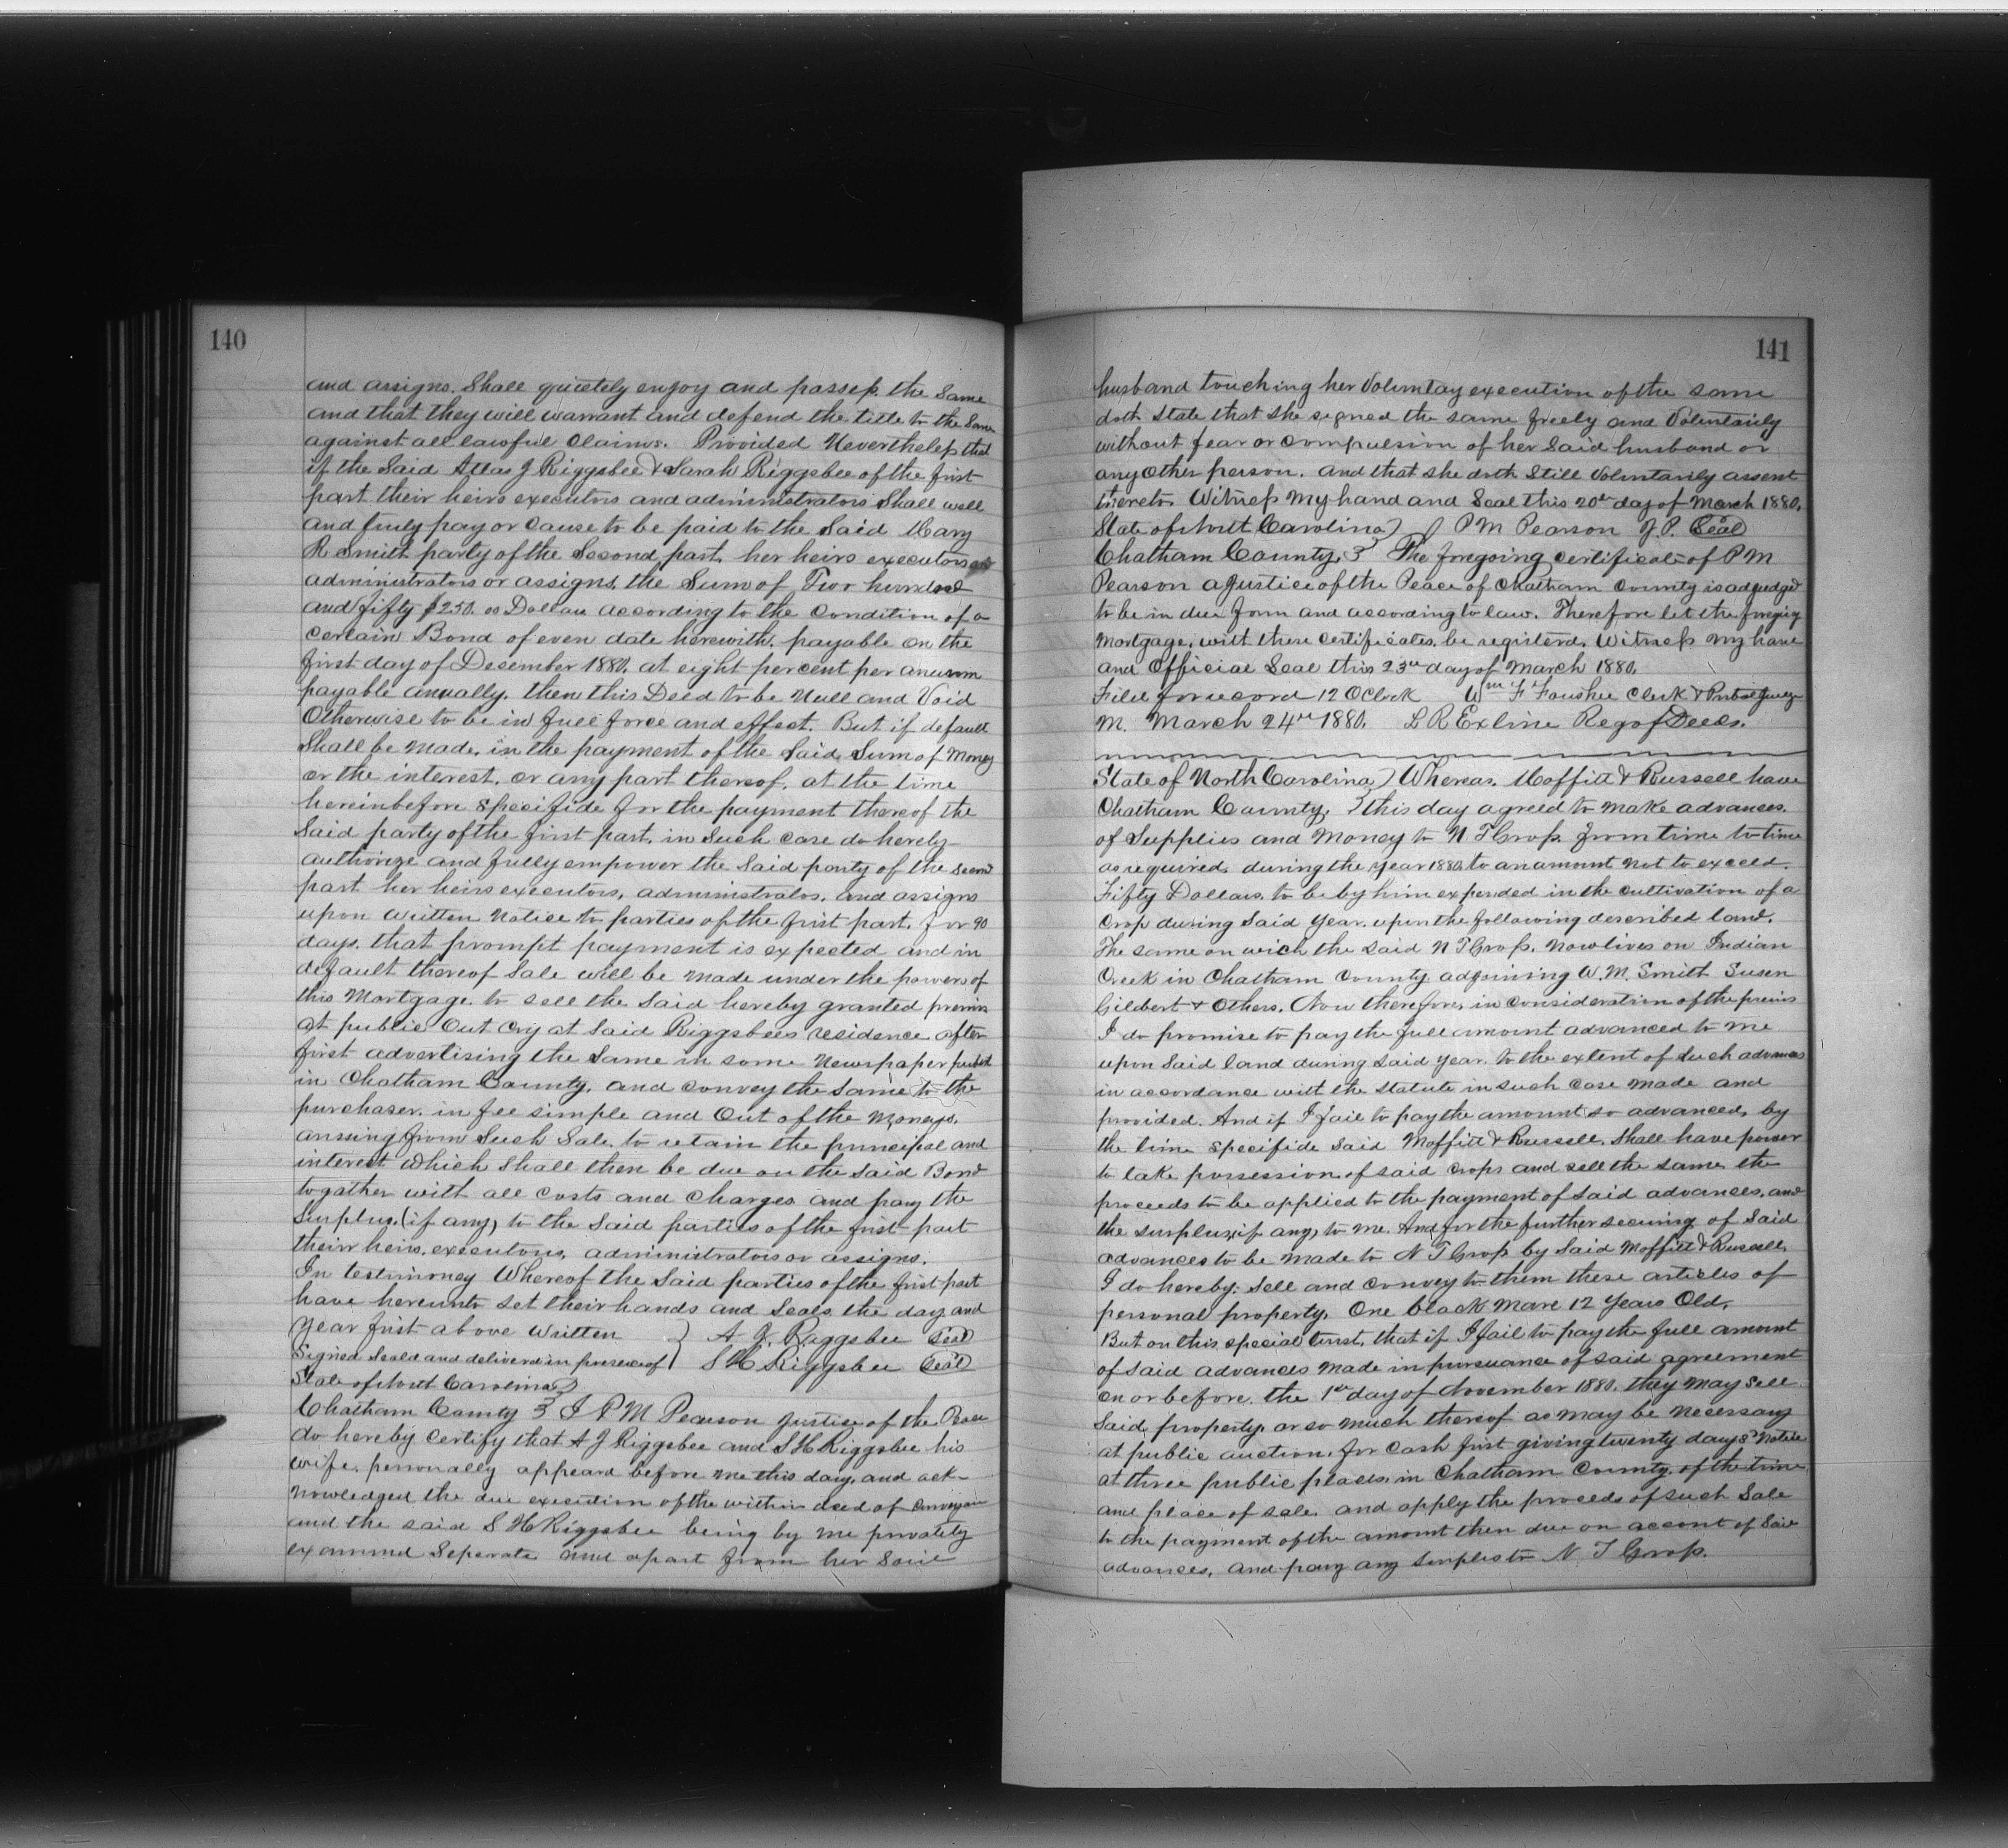 140
and assigns. Shall quietely enjoy and possess. the Same
and that they will warrant and defend the title to the Same
against all lawful Claims. Provided Nevertheless that
if the Said Atlas J Riggsbee & Sarah Riggsbee of the first
part their heirs executors and administrators Shall well
and truly pay or Cause to be paid to the Said Mary
R Smith party of the Second part. her heirs executors
administrators or assigns, the Sum of Two hundred
and fifty $250.00 Dollars according to the Condition of a
certain Bond of even date herewith. payable on the
first day of December 1880. at eight per cent per annum
payable anually. then this Deed to be Null and Void
Otherwise to be in full force and effect. But if default
Shall be Made. in the payment of the Said Sum of Money
or the interest. or any part thereof. at the time
hereinbefore specifide for the payment thereof the
Said party of the first part. in Such case do hereby
authorize and fully empower the Said party of the Second
part her heirs executors, administrators. and assigns
upon written Notice to parties of the first part. for 90
days. that prompt payment is expected and in
default thereof Sale will be Made under the powers of
this Mortgage. to sell the Said hereby granted
at public Out Cry at Said Riggsbees residence after
first advertising the Same in some Newspaper
in Chatham County. and convey the Same to the
purchaser. in fee simple and Out of the Moneys.
arissing from Such Sale. to retain the principal and
interest which Shall then be due on the Said Bond
togather with all Costs and Charges and pay the
Surplus. (if any) to the Said parties of the first part
theirr heirs. executors. administrators or assigns.
In testimoney Whereof the Said parties of the first part
have hereunto set their hands and Seals the day and
year first above written } A J. Raggsbee Seal
Signed Seald and deliverd in presence of } S H Riggsbee Seal
State of North Carolina
Chatham County } I P M Pearson Justice of the Peace
do hereby Certify that A J Riggsbee and S H Riggsbee his
wife. personally appeard before me this day, and ack-
nowledged the due execution of the within deed of
and the said S H Riggsbee being by me privately
examined Seperate and apart from her Said
141
husband touching her Voluntay execution of the same
doth State that she signed the same freely and Voluntarily
without fear or compulsion of her Said husband or
any other person. and that she doth Still Voluntarily assent
thereto. Witness My hand and Seal this 20th day of March 1880.
State of North Carolina } P M Pearson J.P. Seal
Chatham County } The foregoing certificate of P M
Pearson a Justice of the Peace of Chatham County is adjudged
to be in due form and according to law. Therefore let the
Mortgage, with these certificates. be registerd. Witness My hand
and Official Seal this 23rd day of March 1880.
Filed for record 12 OClock Wm F Foushee Clerk & Probate Judge
M. March 24th 1880. L R Exline Reg of Deeds.
State of North Carolina } Whereas. Moffitt & Russell have
Chatham County. } this day agreed to make advances.
of Supplies and Money to N T Gross. from time to time
as required. during the year 1880. to an amount Not to exceed.
Fifty Dollars. to be by him expended in the Cultivation of a
Crop during Said year. upon the following described land.
The same on wich the said N T Gross. Now lives on Indian
Creek in Chatham County adjoining W. M. Smith Susen
Gilbert & Others. Now therefore, in Consideration of the
I do promise to pay the full amount advanced to me
upon Said land during Said year. to the extent of Such advances
in accordance with the Statute in such Case Made and
provided. And if I fail to pay the amount so advanced, by
the time specifide Said Moffitt & Russell. Shall have power
to take possession. of said Crops and sell the same the
proceeds to be applied to the payment of Said advances. and
the surplus, if any, to me. And for the further securing of Said
advances to be made to N T Gross by Said Moffitt & Russell.
I do hereby. sell and convey to them these articles of
personal property. One black Mare 12 Years Old.
But on this special trust. that if I fail to pay the full amount
of said advances made in pursuance of said agreement
on or before. the 1st day of November 1880. they May sell
Said property. or so much thereof as may be necessary
at public auction. for Cash first giving twenty days Notice
at three public places in Chatham County. of the time
and place of sale. and apply the proceeds of such Sale
to the payment of the amount then due on accont of Said
advances. and pay any surples to N. T Gross.